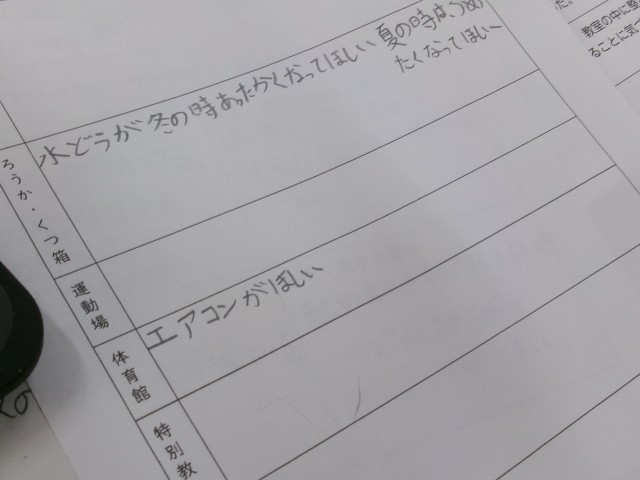 水どうが冬の時あったかくなってほしい 夏の時は、つめ
たくなってほしい
ろうか・くつ箱
運動場
エアコンがほしい
体育館
特別教
た。
教室の中に整
ることに気づ